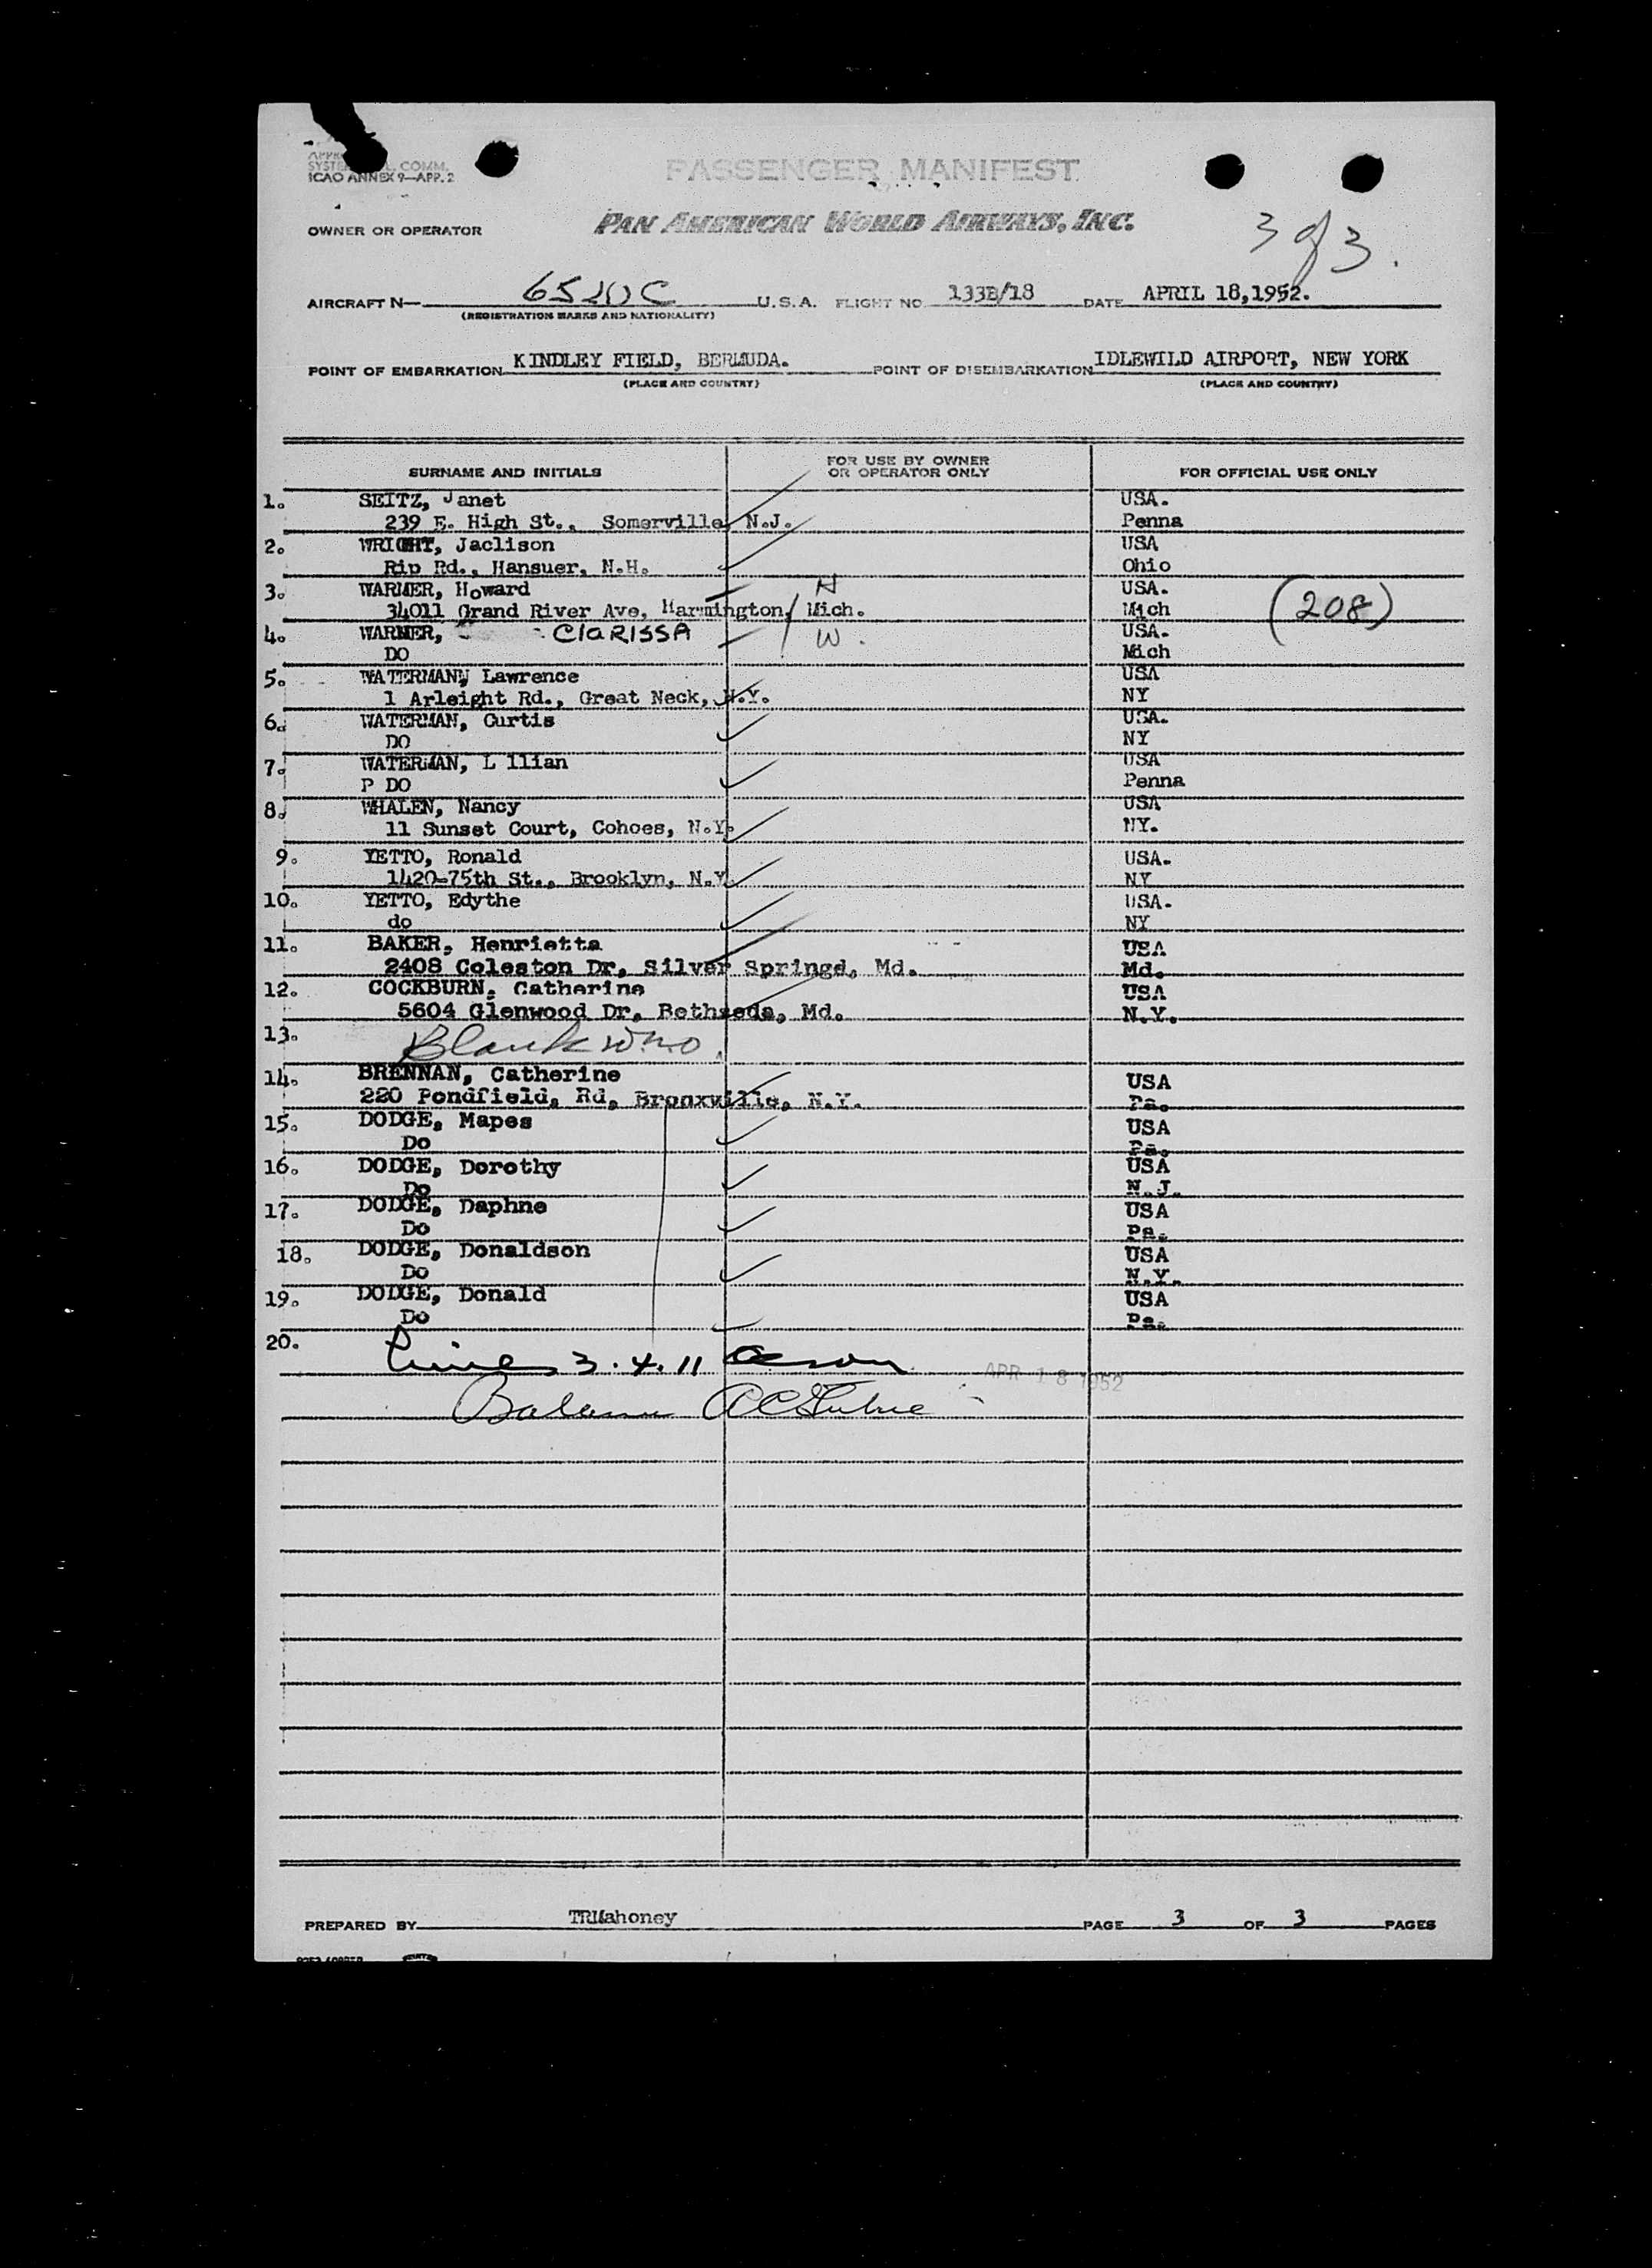 SYSTE COMM.
ICAO ANNEX 9—APP. 2
PASSENGER MANIFEST
OWNER OR OPERATOR PAN AMERICAN WORLD AIRWAYS, INC.
3 of 3.
AIRCRAFT N— U.S.A. FLIGHT NO. 133B/18 DATE APRIL 18,1952.
(REGISTRATION MARKS AND NATIONALITY)
POINT OF EMBARKATION KINDLEY FIELD, BERMUDA. POINT OF DISEMBARKATION IDLEWILD AIRPORT, NEW YORK
(PLACE AND COUNTRY) (PLACE AND COUNTRY)
SURNAME AND INITIALS FOR USE BY OWNER OR OPERATOR ONLY FOR OFFICIAL USE ONLY
1. SEITZ, Janet USA.
239 E. High St., Somerville, N.J. Penna
2. WRIGHT, Jaclison USA
Rip Rd., Hansuer, N.H. Ohio
3. WARNER, Howard H USA.
34011 Grand River Ave, Harmington, Mich. Mich (208)
4. WARNER, ClaRISSA W. USA.
DO Mich
5. WATERMANN, Lawrence USA
1 Arleight Rd., Great Neck, N.Y. NY
6. WATERMAN, Curtis USA.
DO NY
7. WATERMAN, L llian USA
P DO Penna
8. WHALEN, Nancy USA
11 Sunset Court, Cohoes, N.Y. NY.
9. YETTO, Ronald USA.
1420-75th St., Brooklyn, N.Y. NY
10. YETTO, Edythe USA.
do NY
11. BAKER, Henrietta USA
2408 Coleston Dr, Silver Springd, Md. Md.
12. COCKBURN, Catherine USA
5604 Glenwood Dr, Bethseda, Md. N.Y.
13. Blank
14. BRENNAN, Catherine USA
220 Pondfield, Rd, Bronxville, N.Y. Pa.
15. DODGE, Mapes USA
Do Pa.
16. DODGE, Dorothy USA
Do N.J.
17. DODGE, Daphne USA
Do Pa.
18. DODGE, Donaldson USA
Do N.Y.
19. DODGE, Donald USA
Do Pa.
20.
3. 4. 11
APR 18 1952
PREPARED BY TRMahoney PAGE 3 OF 3 PAGES